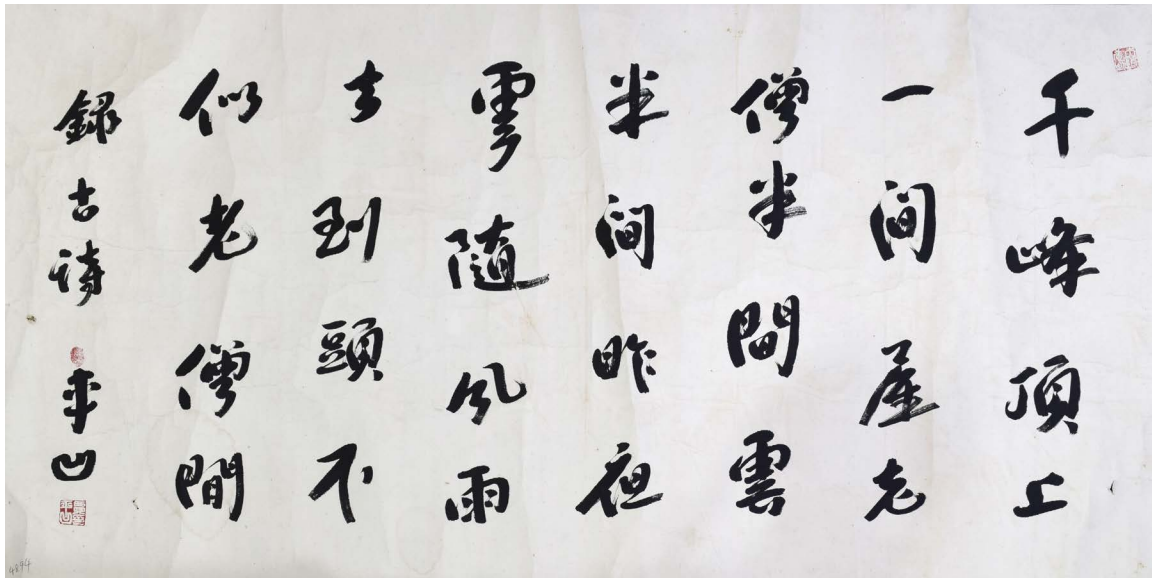 千峰頂上
一间屋老
僧半間雲
半间昨夜
雲隨风雨
去到頭不
似老僧閒
錄古詩 平凹